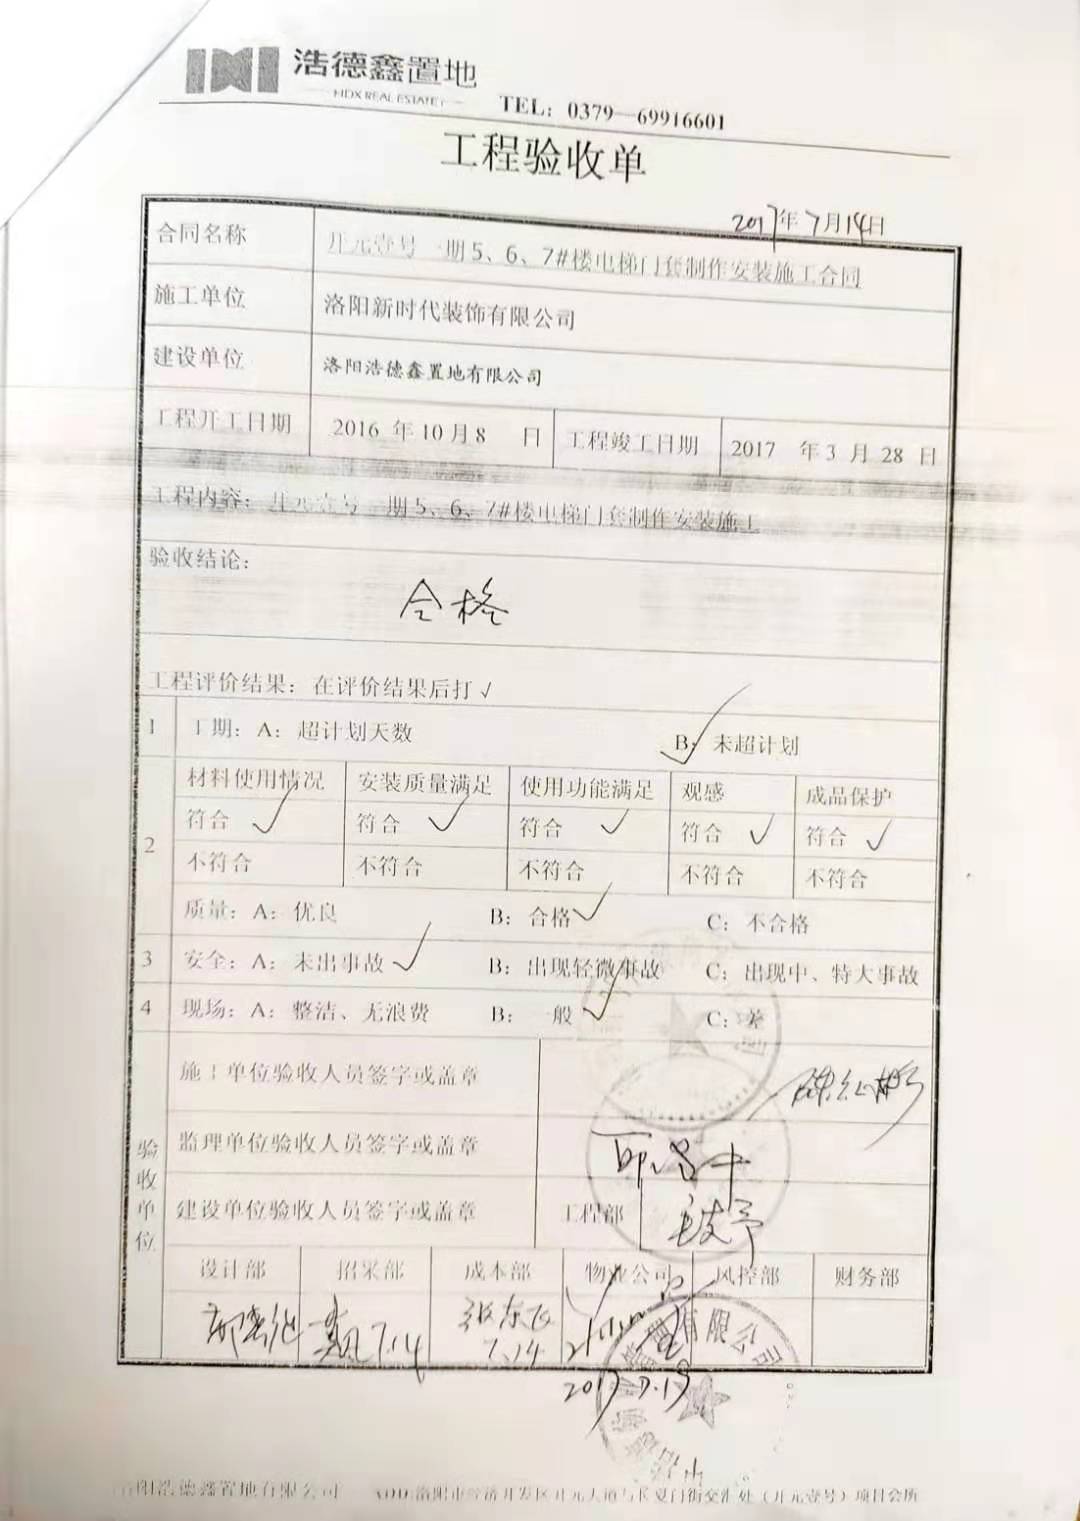 浩德鑫置地
HDX REAL ESTATE
TEL：0379—69916601
工程验收单
2017年7月14日
合同名称 开元壹号一期5、6、7#楼电梯门套制作安装施工合同
施工单位 洛阳新时代装饰有限公司
建设单位 洛阳浩德鑫置地有限公司
工程开工日期 2016 年 10 月 8 日 工程竣工日期 2017 年 3 月 28 日
工程内容：开元壹号一期5、6、7#楼电梯门套制作安装施工
验收结论：
合格
工程评价结果：在评价结果后打√
1 工期：A：超计划天数 B：未超计划 √
2 材料使用情况 安装质量满足 使用功能满足 观感 成品保护
符合 √ 符合 √ 符合 √ 符合 √ 符合 √
不符合 不符合 不符合 不符合 不符合
质量：A：优良 B：合格 √ C：不合格
3 安全：A：未出事故 √ B：出现轻微事故 C：出现中、特大事故
4 现场：A：整洁、无浪费 B：一般 √ C：差
验收单位
施工单位验收人员签字或盖章
监理单位验收人员签字或盖章
建设单位验收人员签字或盖章 工程部
设计部 招采部 成本部 物业公司 风控部 财务部
7.14 张东飞
7.14
2017.7.19
有限公司
洛阳浩德鑫置地有限公司 ADD:洛阳市经济开发区开元大道与长夏门街交汇处（开元壹号）项目会所